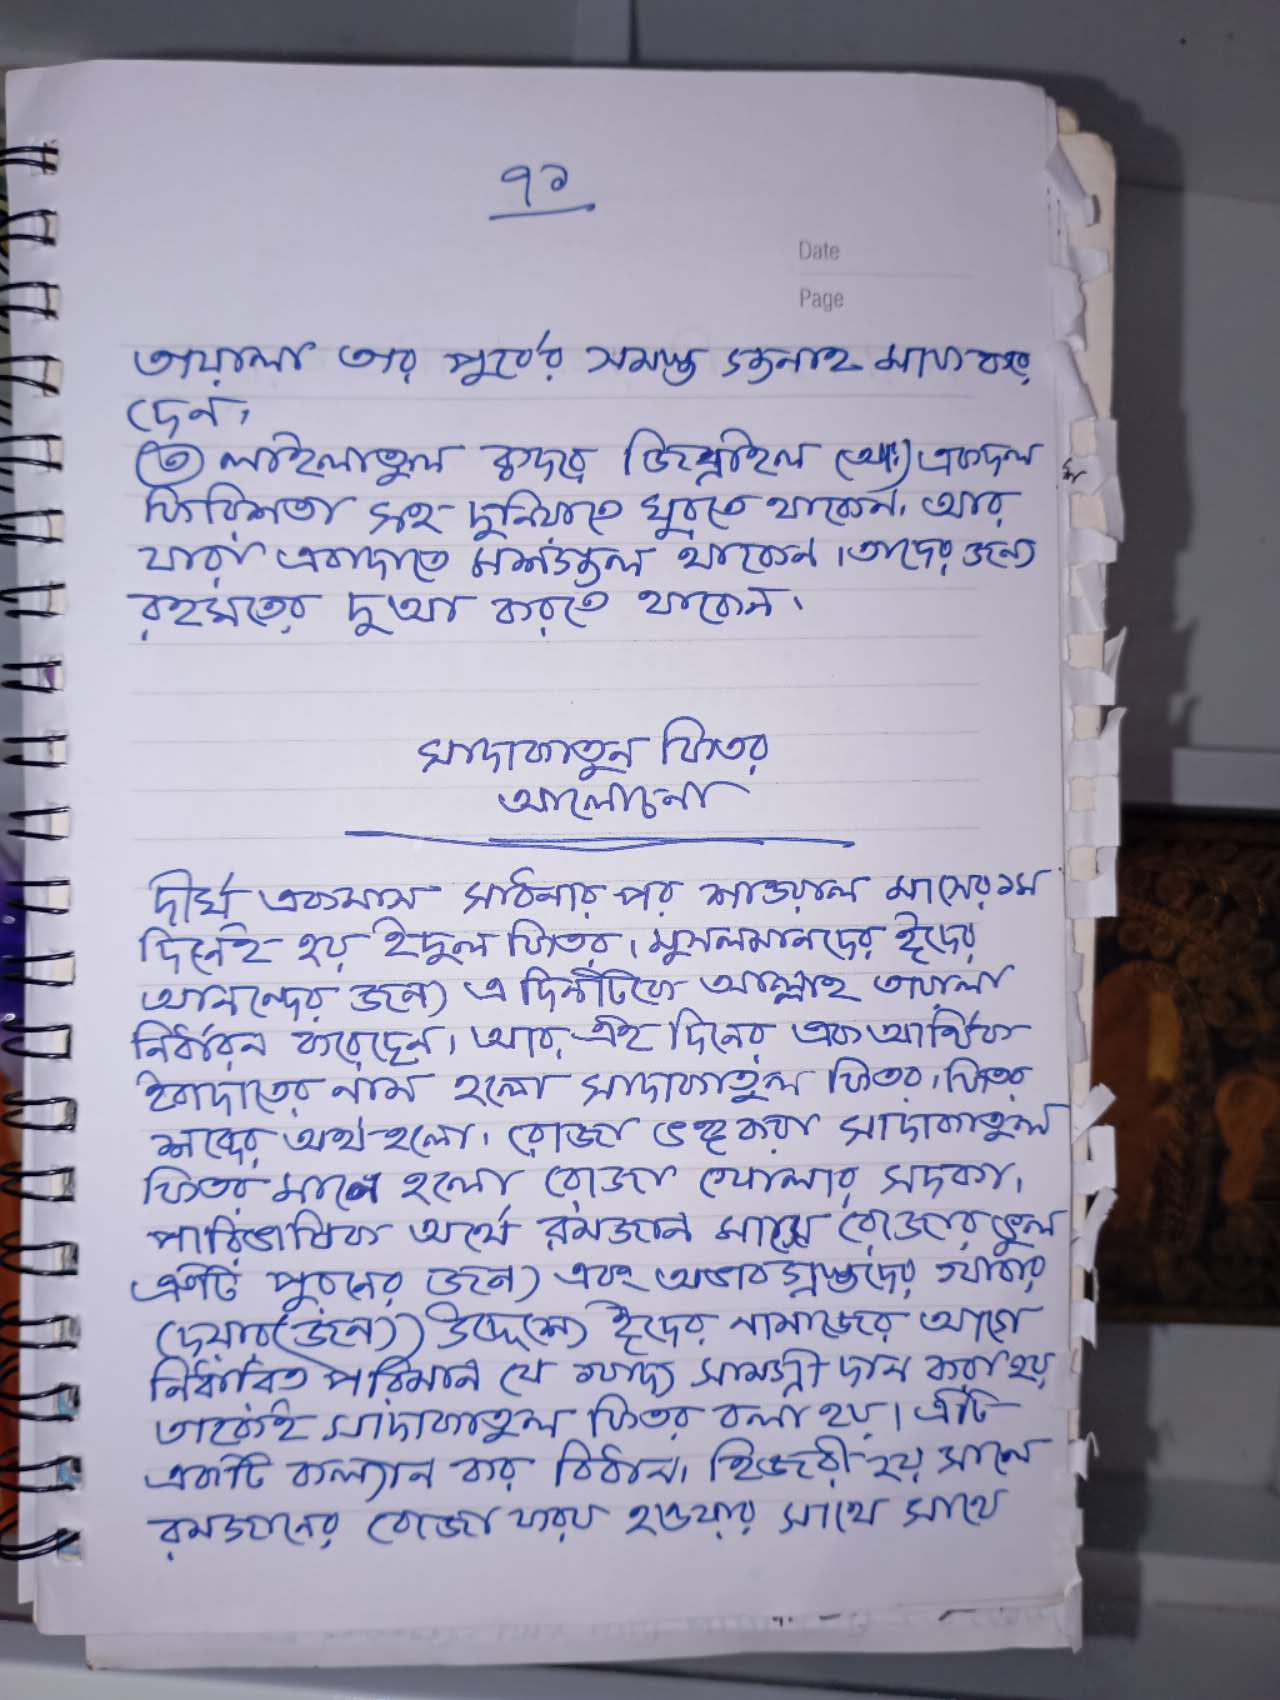 ৭১
Date
Page
তায়ালা তার পুর্বের সমস্ত গুনাহ মাফ করে
দেন।
(৩) লাইলাতুল ক্বদরে জিব্রাইল (আঃ) একদল
ফিরিশতা সহ দুনিয়াতে ঘুরতে থাকেন। আর
যারা এবাদাতে মশগুল থাকেন। তাদের জন্যে
রহমতের দুআ করতে থাকেন।
সাদাকাতুল ফিতর
আলোচনা
দীর্ঘ একমাস সাধনার পর শাওয়াল মাসের ১ম
দিনেই হয় ইদুল ফিতর। মুসলমানদের ঈদের
আনন্দের জন্য এ দিনটিকে আল্লাহ তায়ালা
নির্ধারন করেছেন। আর এই দিনের এক আর্থিক
ইবাদাতের নাম হলো সাদাকাতুল ফিতর। ফিতর
শব্দের অর্থ হলো। রোজা ভঙ্গ করা সাদাকাতুল
ফিতর মানে হলো রোজা খোলার সদকা।
পারিভাষিক অর্থে রমজান মাসে রোজার ভুল
ত্রুটি পুরনের জন্য এবং অভাব গ্রস্তদের খাবার
দেয়ার (জন্য) উদ্দেশ্যে ঈদের নামাজের আগে
নির্ধারিত পরিমান যে খাদ্য সামগ্রী দান করা হয়
তাকেই সাদাকাতুল ফিতর বলা হয়। এটি
একটি কল্যান কর বিধান। হিজরী ২য় সালে
রমজানের রোজা ফরয হওয়ার সাথে সাথে